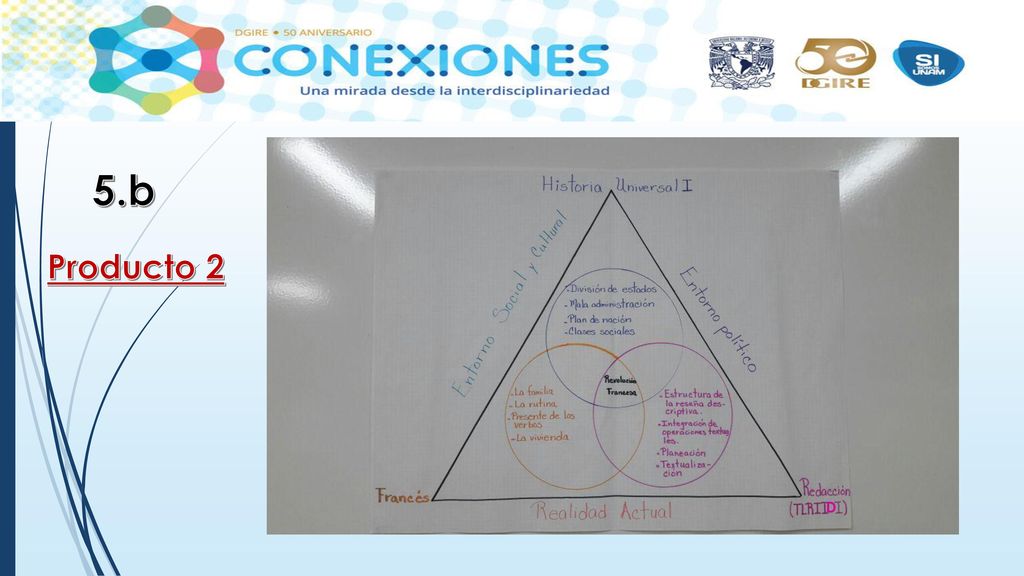 DGIRE • 50 ANIVERSARIO
CONEXIONES
Una mirada desde la interdisciplinariedad
50
DGIRE
SI
SOMOS
UNAM
5.b
Producto 2
Historia Universal I
Entorno Social y Cultural
Entorno político
- División de estados
- Mala administración
- Plan de nación
- Clases sociales
Revolución
Francesa
- La familia
- La rutina
- Presente de los
verbos
- La vivienda
- Estructura de
la reseña des-
criptiva.
- Integración de
operaciones textua
les.
- Planeación
- Textualiza-
ción
Francés
Realidad Actual
Redacción
(TLRIIDI)